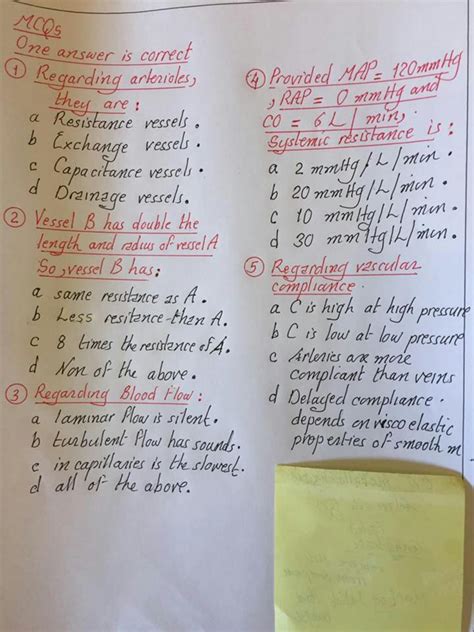 MCQs
One answer is correct
① Regarding arterioles,
they are :
a Resistance vessels .
b Exchange vessels .
c Capacitance vessels .
d Drainage vessels.
② Vessel B has double the
length and radius of vessel A
So, vessel B has:
a same resistance as A .
b Less resitance than A.
c 8 times the resistance of A.
d Non of the above .
③ Regarding Blood Flow :
a laminar Flow is silent.
b turbulent Flow has sounds.
c in capillaries is the slowest.
d all of the above.
④ Provided MAP = 120 mmHg
, RAP = 0 mmHg and
CO = 6 L / min,
Systemic resistance is :
a 2 mmHg/L/min.
b 20 mmHg/L/min.
c 10 mmHg/L/min.
d 30 mmHg/L/min.
⑤ Regarding vascular
compliance :
a C is high at high pressure
b C is low at low pressure
c Arteries are more
compliant than veins
d Delayed compliance
depends on visco elastic
properties of smooth m